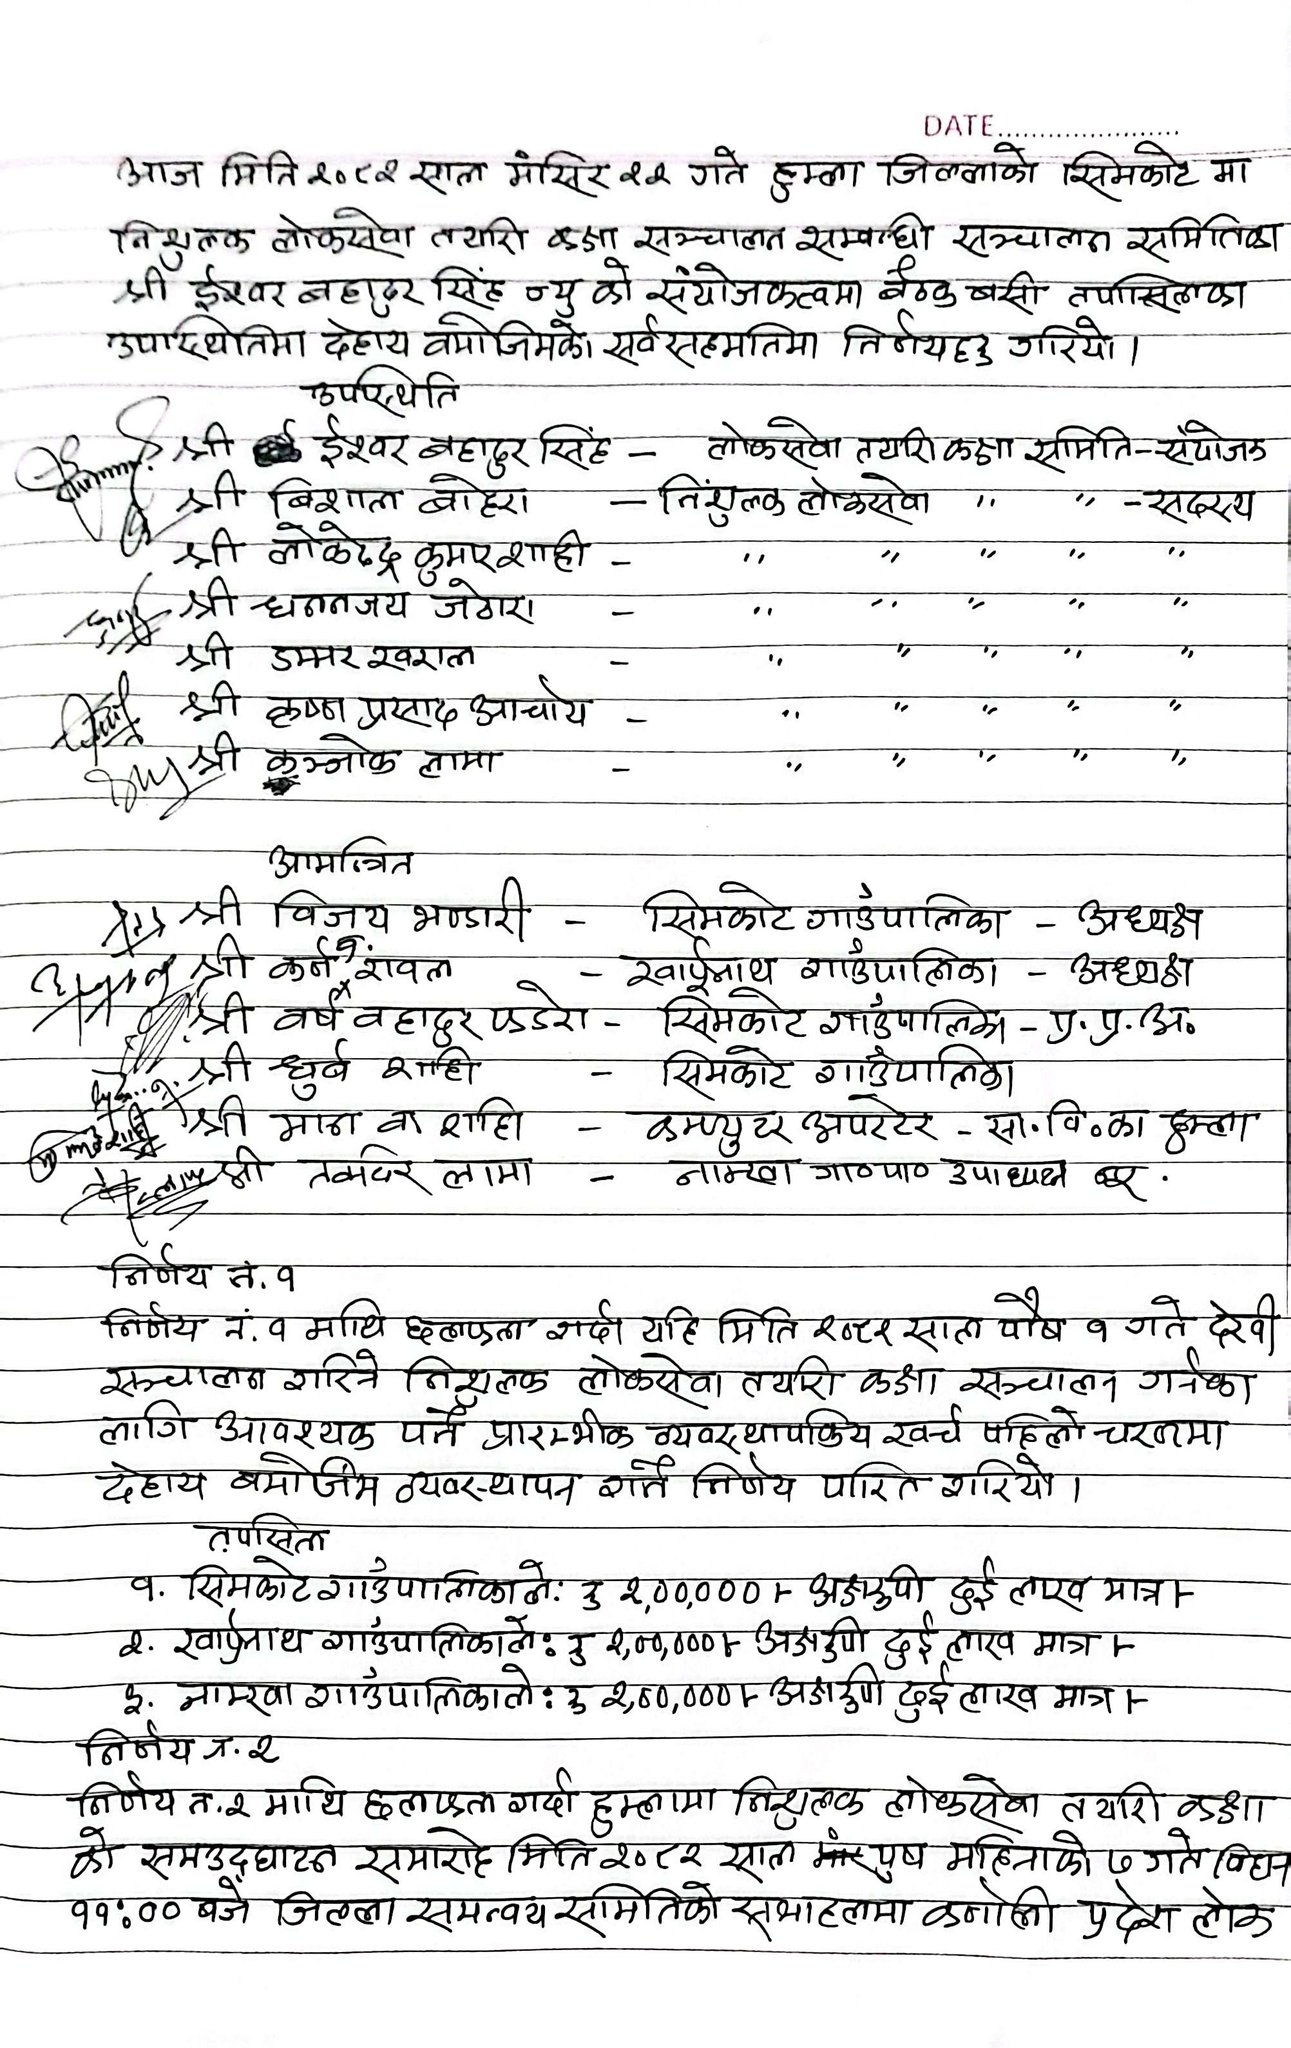 DATE......................
आज मिति २०८२ साल मंसिर २२ गते हुम्ला जिल्लाको सिमकोट मा
निशुलक लोकसेवा तयारी कक्षा सञ्चालन सम्बन्धी सञ्चालन समितिका
श्री ईश्वर बहादुर सिंह ज्यु को संयोजकत्वमा बैठक बसी तपसिलका
उपस्थितिमा देहाय बमोजिमको सर्वसहमतिमा निर्णयहरु गरियो।
उपस्थिति
श्री ईश्वर बहादुर सिंह – लोकसेवा तयारी कक्षा समिति – संयोजक
श्री बिशाल बोहरा – निशुलक लोकसेवा " " – सदस्य
श्री लोकेन्द्र कुमार शाही – " " " " "
श्री धनन्जय जेठारा – " " " " "
श्री डम्मर खराल – " " " " "
श्री कृष्ण प्रसाद आचार्य – " " " " "
श्री कुञ्जोक लामा – " " " " "
आमन्त्रित
श्री विजय भण्डारी – सिमकोट गाउँपालिका – अध्यक्ष
श्री कर्न रावल – खार्पुनाथ गाउँपालिका – अध्यक्ष
श्री वर्ष बहादुर फडेरा – सिमकोट गाउँपालिका – प्र. प्र. अ.
श्री धुर्व शाही – सिमकोट गाउँपालिका
श्री मान ब शाहि – कम्प्युटर अपरेटर – सा. वि. का हुम्ला
श्री लामा – नाम्खा गा०पा० उपाध्यक्ष
निर्णय नं. १
निर्णय नं. १ माथि छलफल गर्दा यहि मिति २०८२ साल पौष १ गते देखी
सञ्चालन गरिने निशुलक लोकसेवा तयारी कक्षा सञ्चालन गर्नका
लागि आवश्यक पर्ने प्रारम्भीक व्यवस्थापकिय खर्च पहिलो चरणमा
देहाय बमोजिम व्यवस्थापन गर्ने निर्णय पारित गरियो।
तपसिल
१. सिमकोट गाउँपालिकाले: रु २,००,०००।- अक्षरुपी दुई लाख मात्र।-
२. खार्पुनाथ गाउँपालिकाले: रु २,००,०००।- अक्षरुपी दुई लाख मात्र।-
३. नाम्खा गाउँपालिकाले: रु २,००,०००।- अक्षरुपी दुई लाख मात्र।-
निर्णय न. २
निर्णय न. २ माथि छलफल गर्दा हुम्लामा निशुलक लोकसेवा तयारी कक्षा
को समउद्घाटन समारोह मिति २०८२ साल पुष महिनाको ७ गते विहान
११:०० बजे जिल्ला समन्वय समितिको सभाहलमा कर्णाली प्रदेश लोक